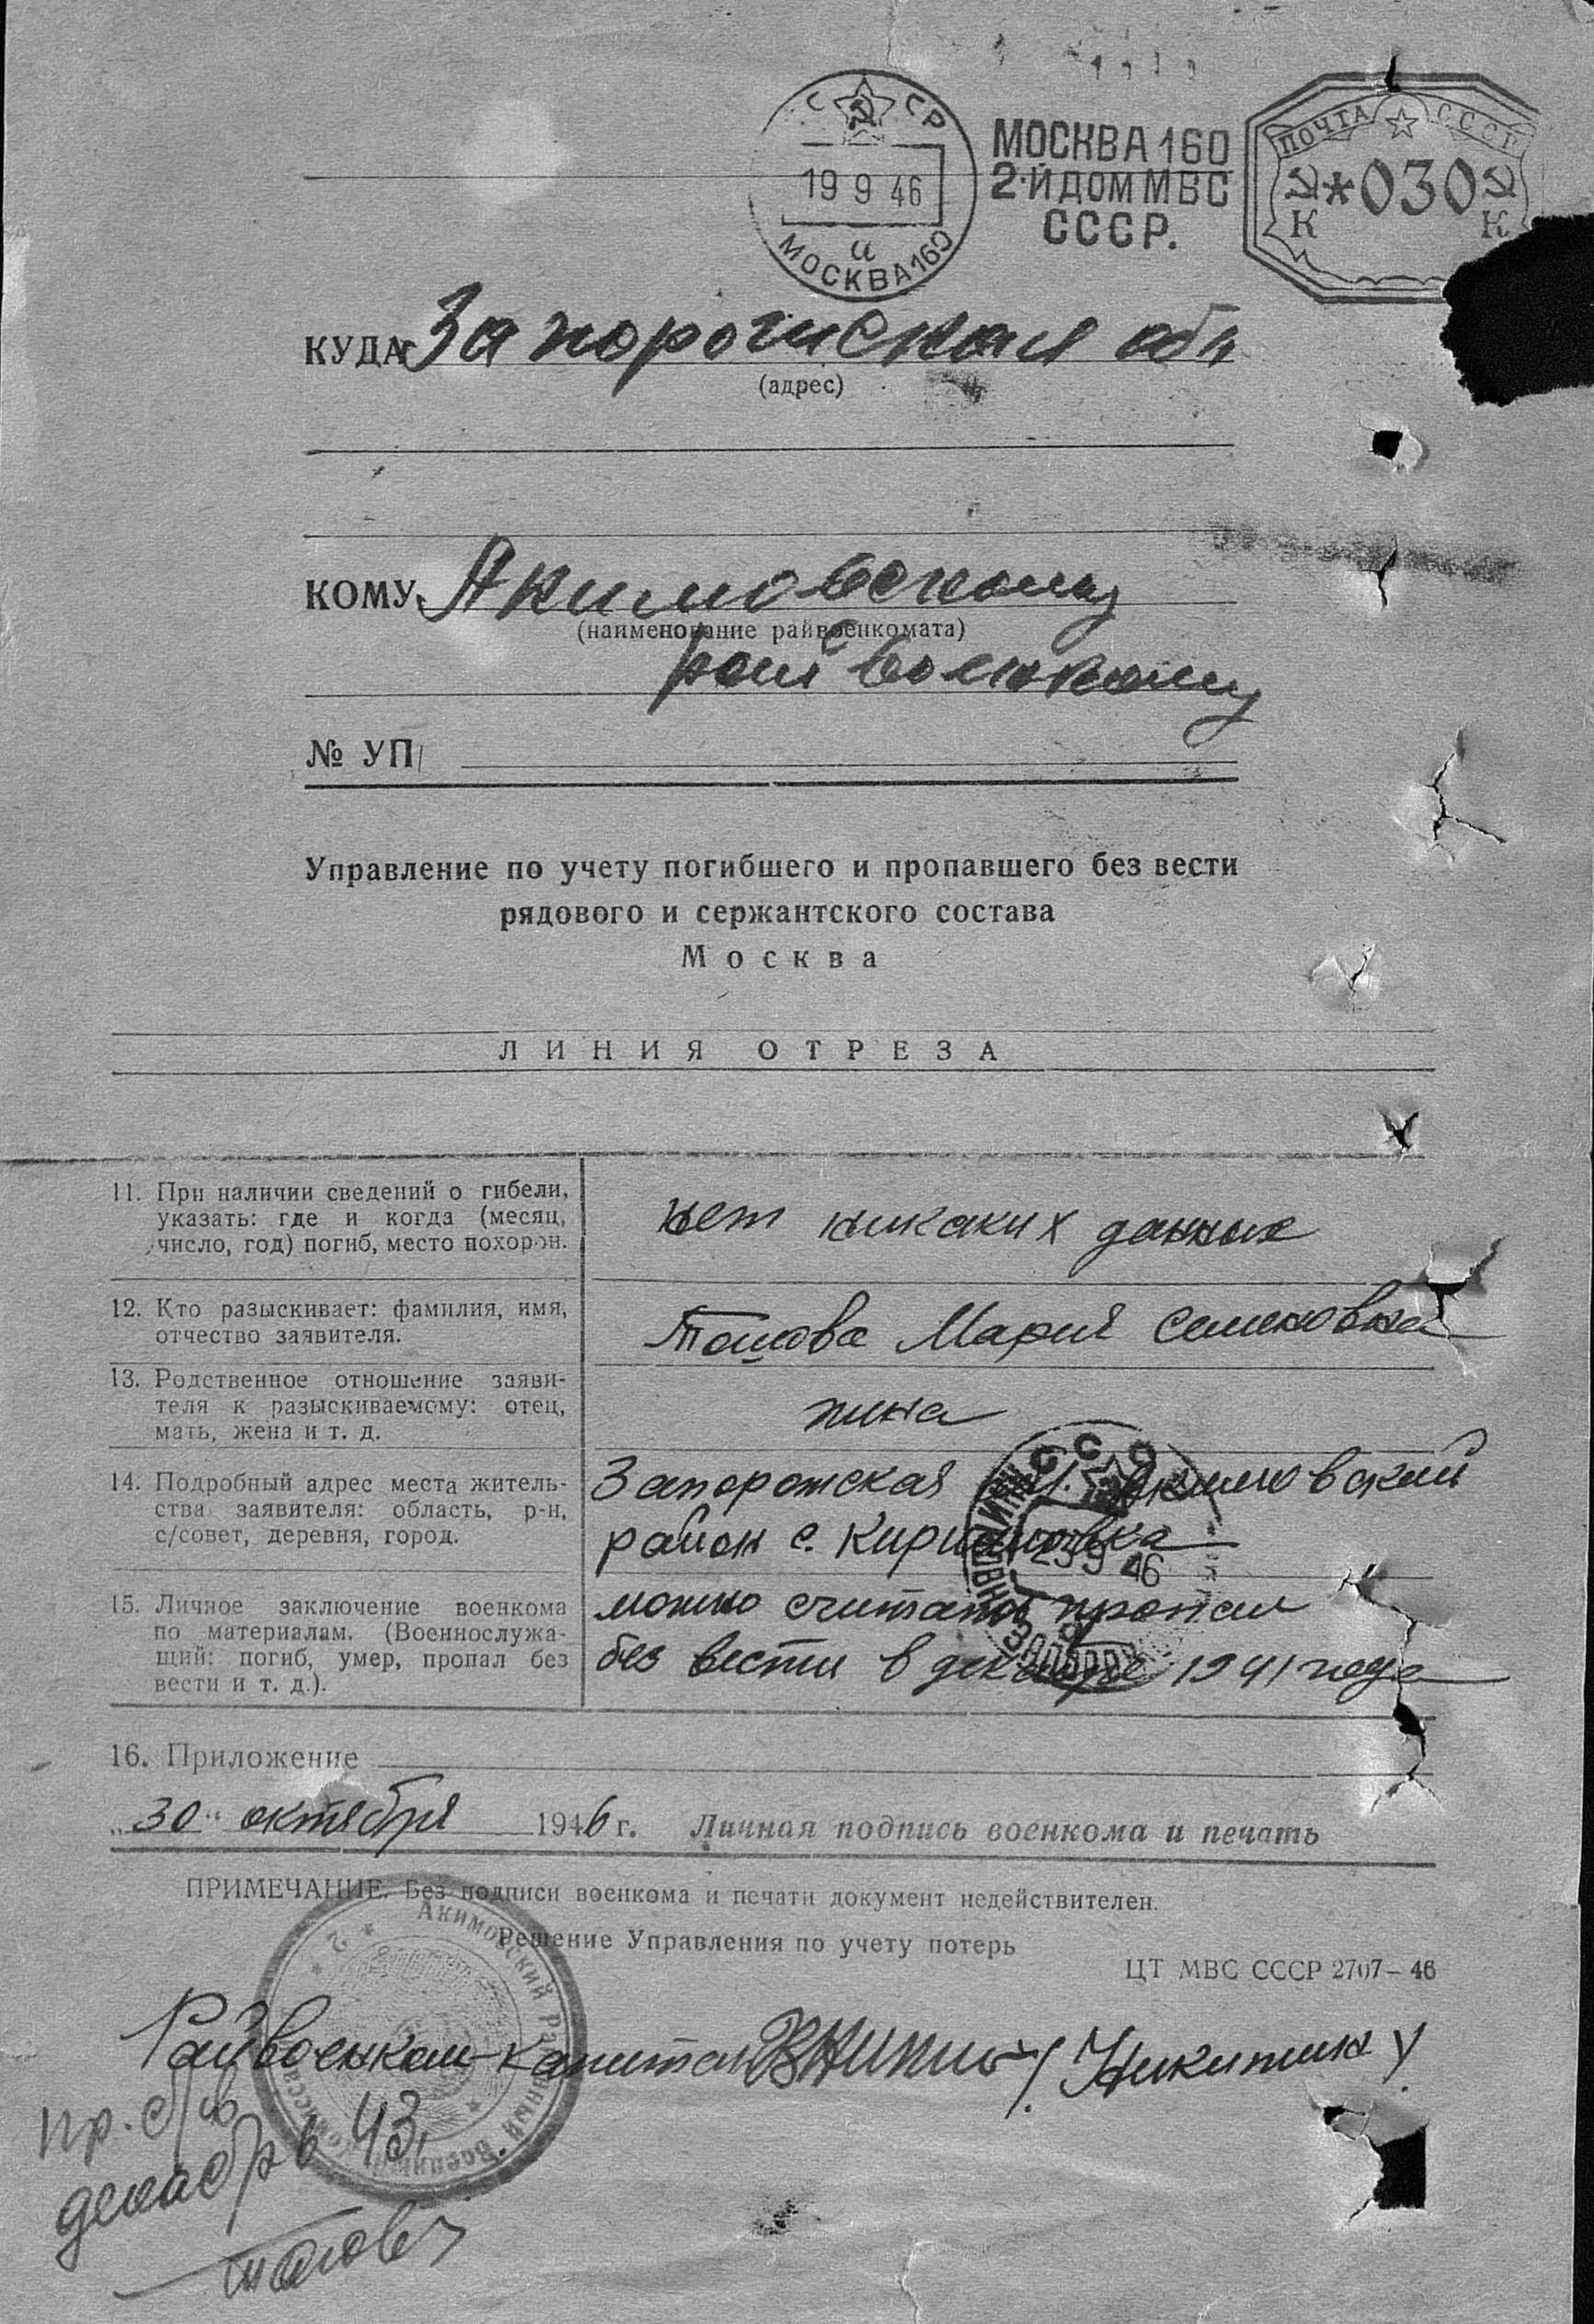 СССР
19 9 46
и
МОСКВА 160
МОСКВА 160
2-Й ДОМ МВС
СССР.
ПОЧТА СССР
*030
К К
КУДА Запорожская обл
(адрес)
КОМУ Акимовскому
(наименование райвоенкомата)
райвоенкому
№ УП/
Управление по учету погибшего и пропавшего без вести
рядового и сержантского состава
Москва
ЛИНИЯ ОТРЕЗА
11. При наличии сведений о гибели,
указать: где и когда (месяц,
число, год) погиб, место похорон.
нет никаких данных
12. Кто разыскивает: фамилия, имя,
отчество заявителя.
Мария Семеновна
13. Родственное отношение заяви-
теля к разыскиваемому: отец,
мать, жена и т. д.
жена
14. Подробный адрес места житель-
ства заявителя: область, р-н,
с/совет, деревня, город.
Запорожская обл. Акимовский
район с. Кирилловка
9 46
15. Личное заключение военкома
по материалам. (Военнослужа-
щий: погиб, умер, пропал без
вести и т. д.).
можно считать пропал
без вести в декабре 1941 года
16. Приложение
„30" октября 1946 г. Личная подпись военкома и печать
ПРИМЕЧАНИЕ. Без подписи военкома и печати документ недействителен.
Решение Управления по учету потерь
ЦТ МВС СССР 2707—46
Акимовский Районный Военный Комиссариат
Райвоенком капитан /Никитин/
пр. б/в
декабрь 43